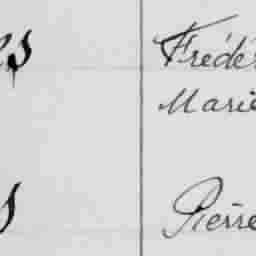 Frédér
Marie
Pierre